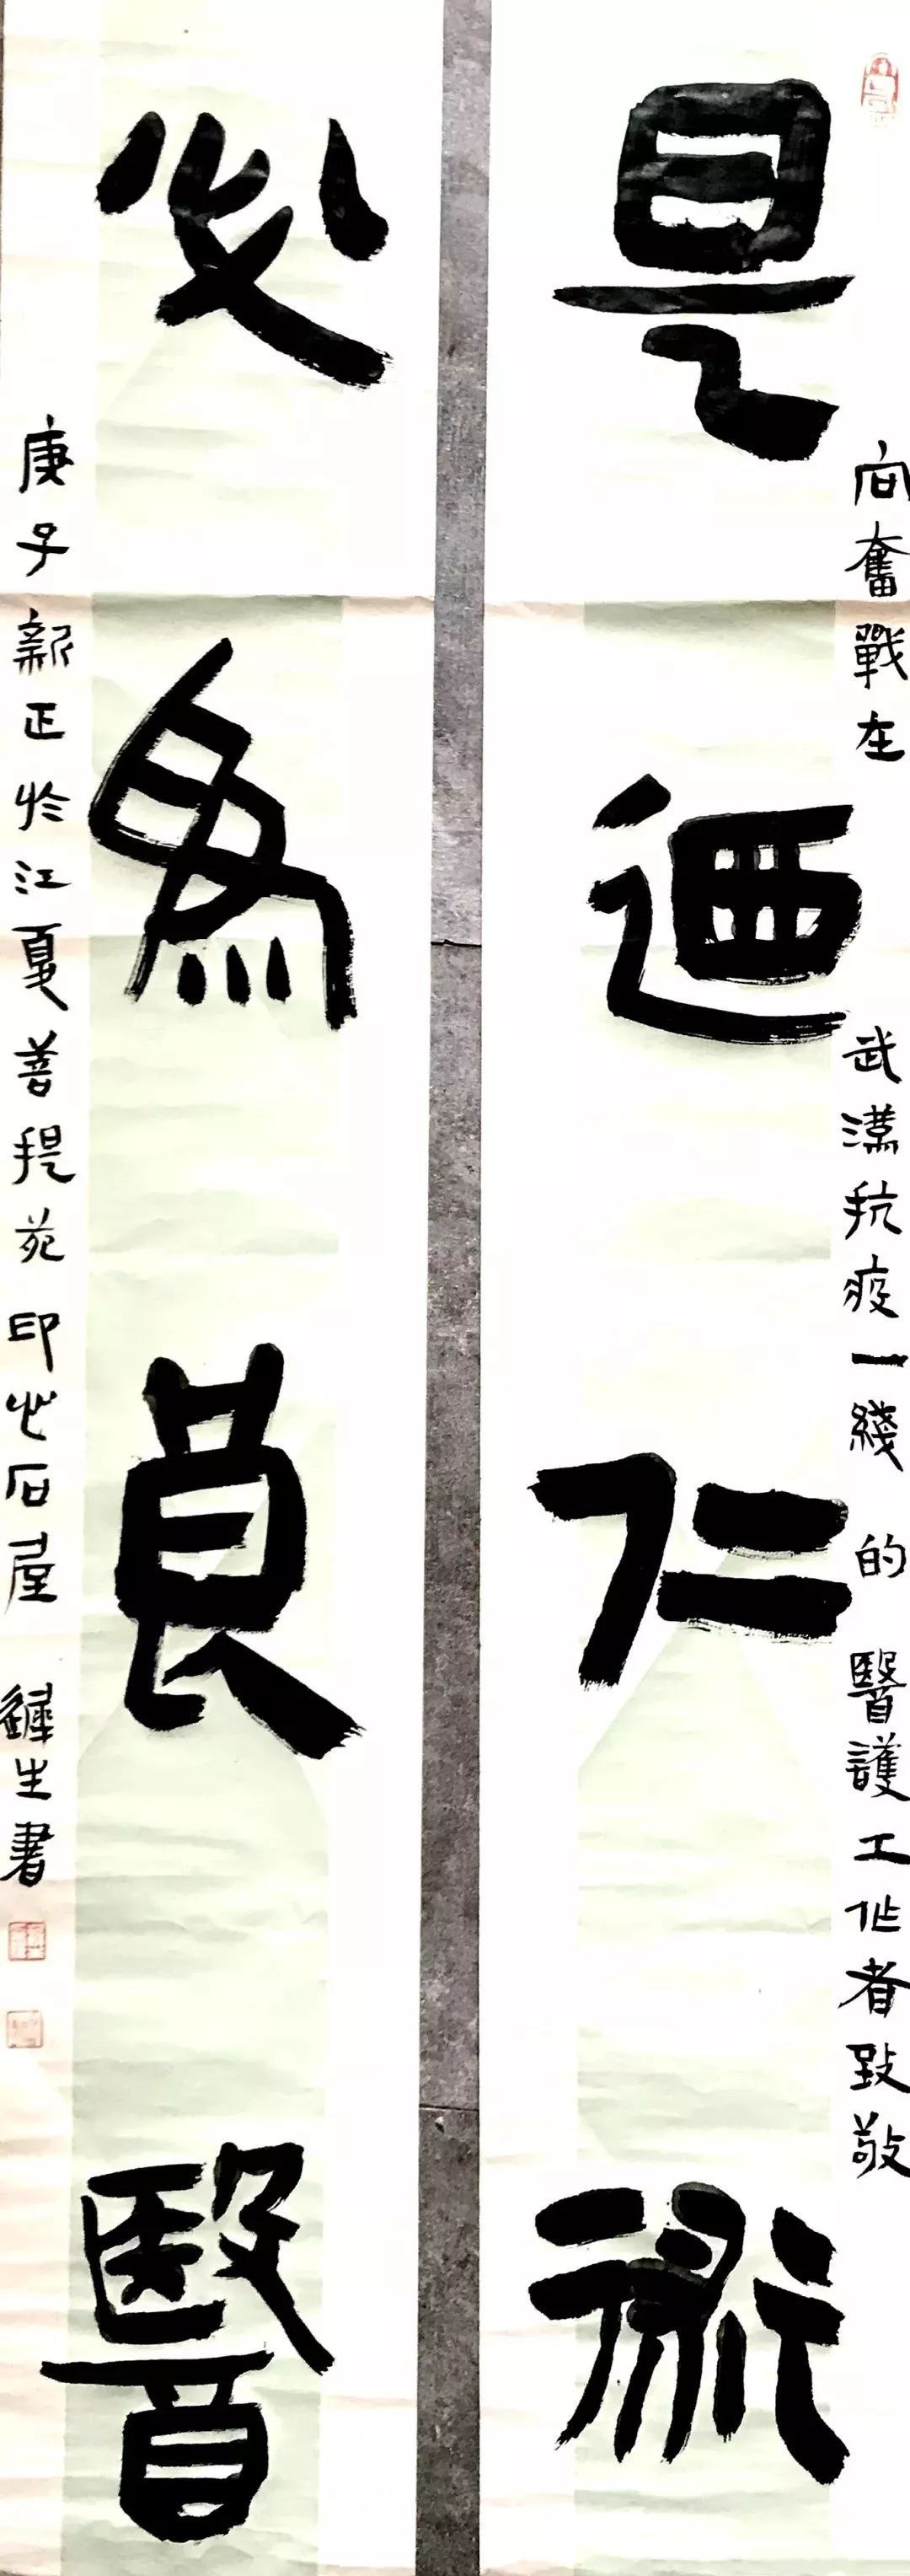 向奮戰在武漢抗疫一綫的醫護工作者致敬
是迺仁術
必為良醫
庚子新正於江夏菩提苑印心石屋 生書